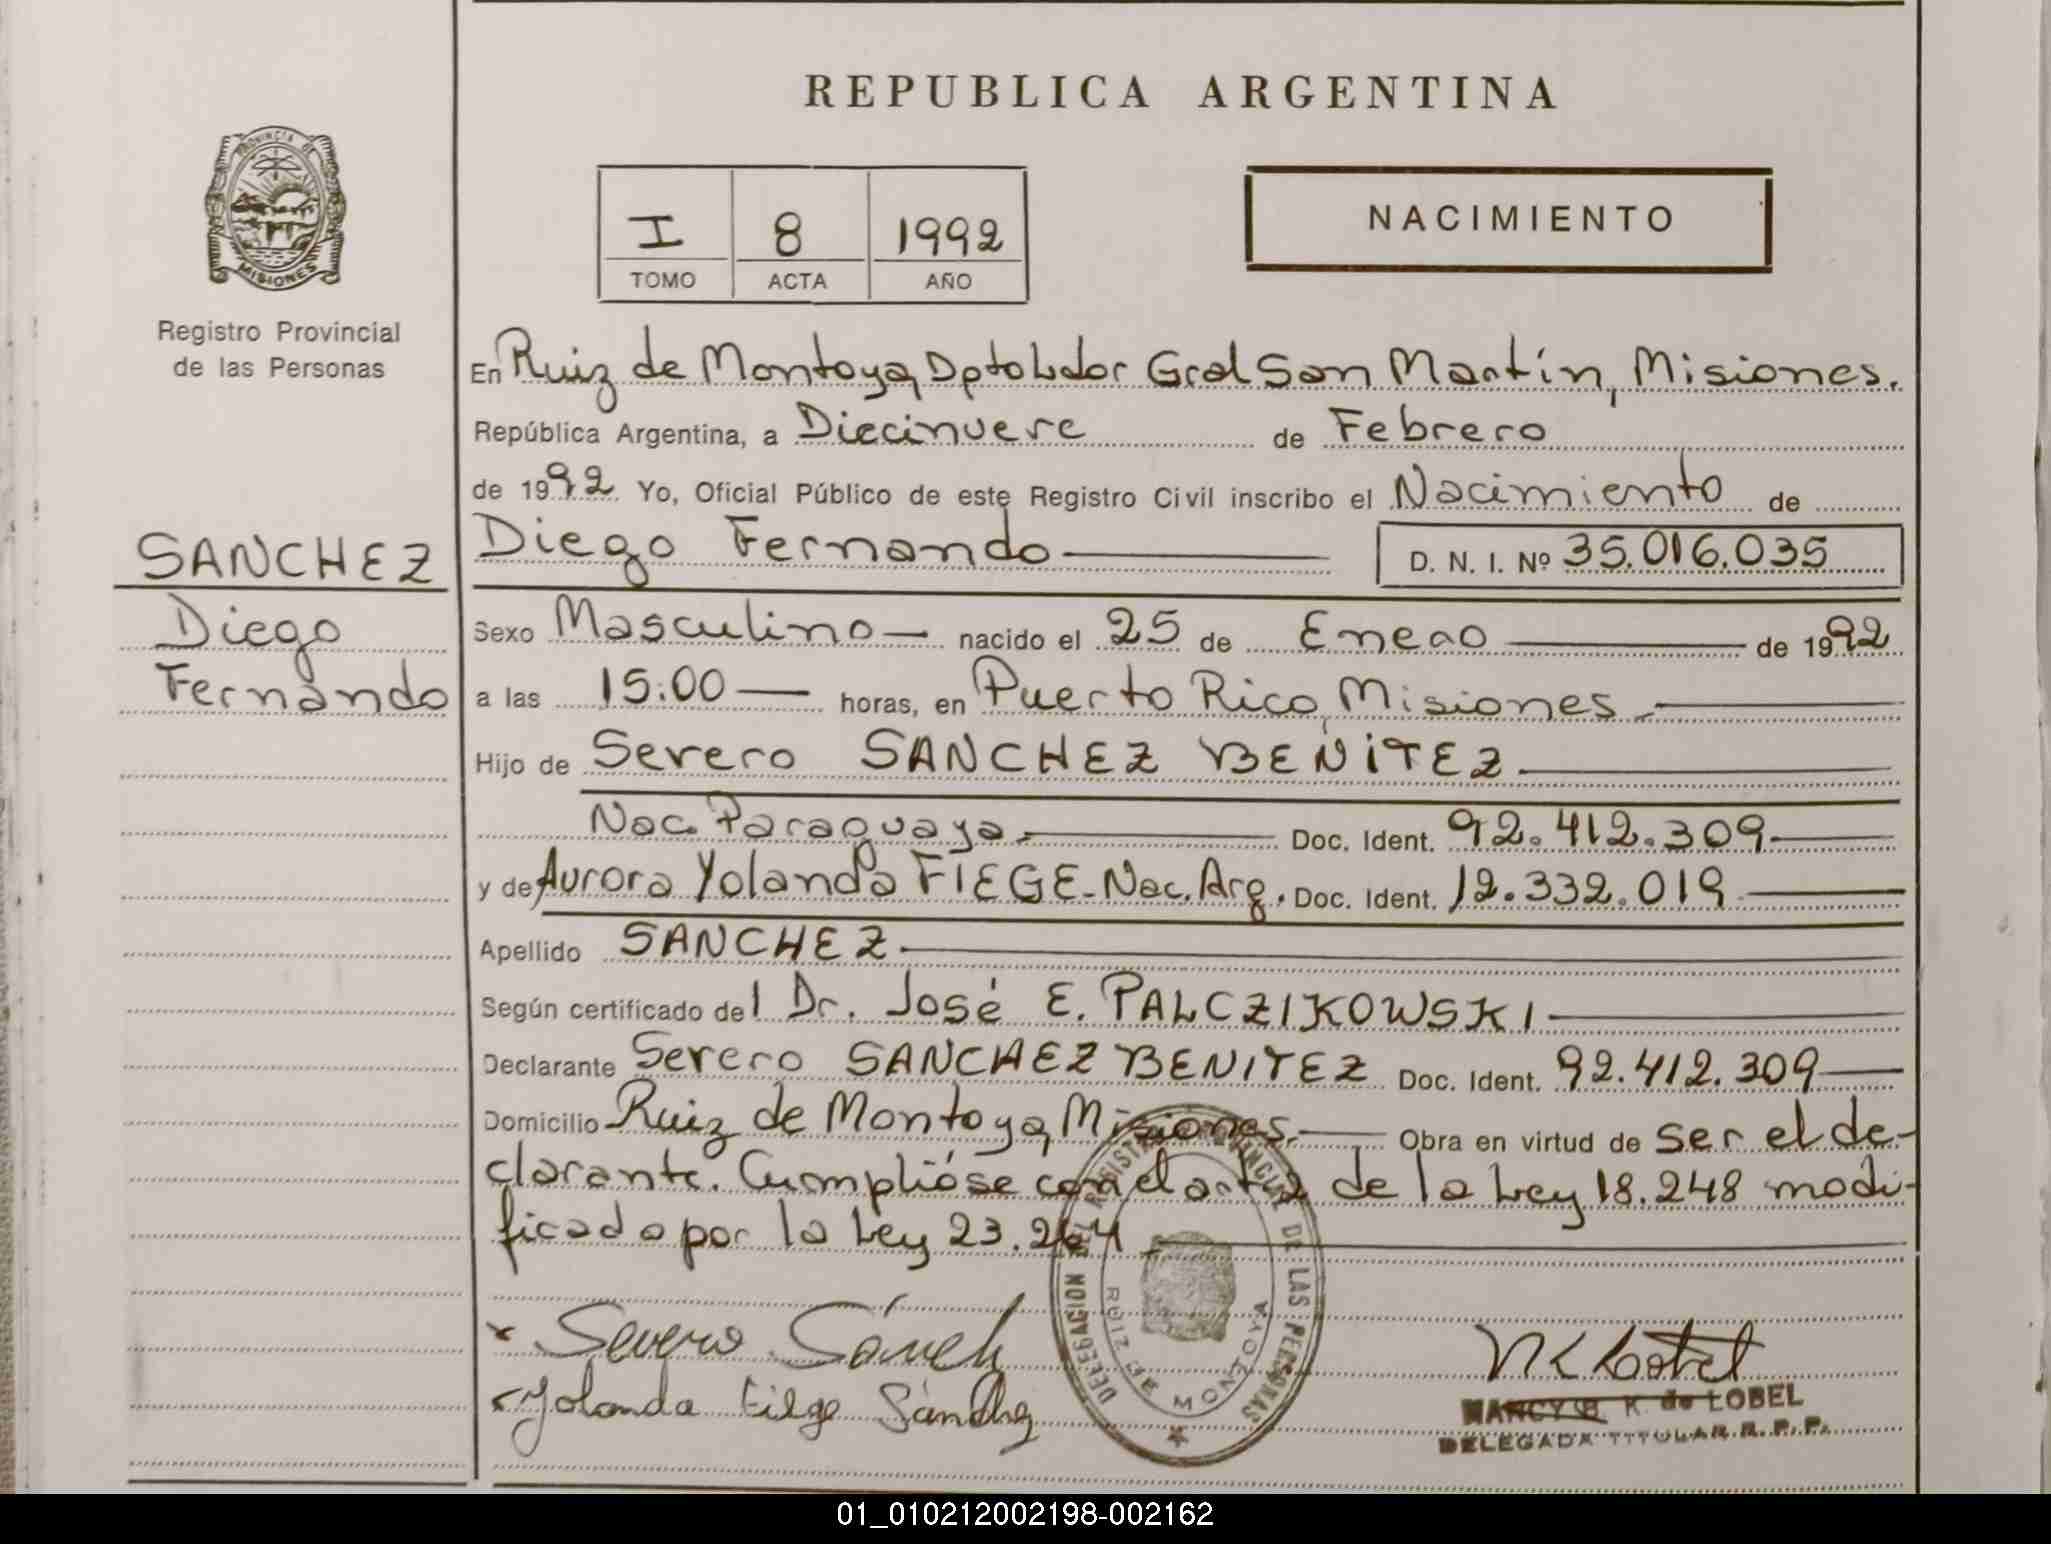 REPUBLICA ARGENTINA
PROVINCIA DE
MISIONES
Registro Provincial
de las Personas
I 8 1992
TOMO ACTA AÑO
NACIMIENTO
En Ruiz de Montoya, Dpto Ldor Gral San Martín, Misiones.
República Argentina, a Diecinueve de Febrero
de 1992 Yo, Oficial Público de este Registro Civil inscribo el Nacimiento de
Diego Fernando D. N. I. Nº 35.016.035
SANCHEZ
Diego
Fernando
Sexo Masculino nacido el 25 de Enero de 1992
a las 15:00 horas, en Puerto Rico, Misiones
Hijo de Severo SANCHEZ BENITEZ
Nac. Paraguaya Doc. Ident. 92.412.309
y de Aurora Yolanda FIEGE - Nac. Arg. Doc. Ident. 12.332.019
Apellido SANCHEZ
Según certificado del Dr. José E. PALCZIKOWSKI
Declarante Severo SANCHEZ BENITEZ Doc. Ident. 92.412.309
Domicilio Ruiz de Montoya, Misiones Obra en virtud de ser el de-
clarante. Cumplióse con el art 2 de la Ley 18.248 modi-
ficado por la Ley 23.264
DELEGACION DEL REGISTRO PROVINCIAL DE LAS PERSONAS
RUIZ DE MONTOYA
Severo Sánch
Yolanda Fiege Sánchez
NANCY B. K. de LOBEL
DELEGADA TITULAR R. P. P.
01_010212002198-002162